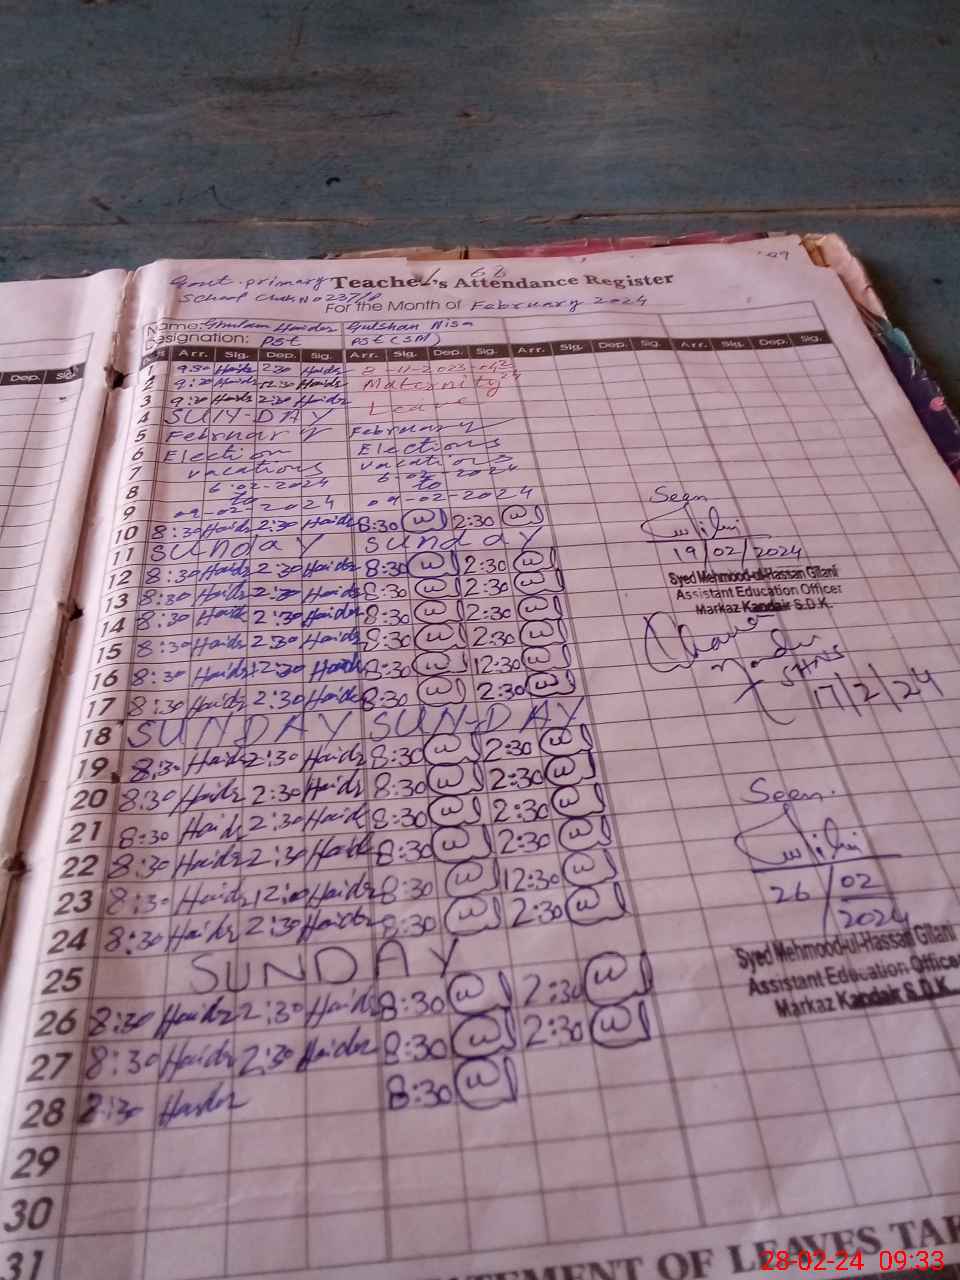 Govt. primary Teacher's Attendance Register
School Chak No 237/P For the Month of February 2024
Name: Ghulam Haider Gulshan Nisa
Designation: PST PST (SM)
Dep. Sig.
Arr. Sig. Dep. Sig. Arr. Sig. Dep. Sig. Arr. Sig. Dep. Sig. Arr. Sig. Dep. Sig.
1 9:30 Haider 2:30 Haider
2 9:30 Haider 12:30 Haider Maternity
3 9:30 Haider 2:30 Haider Leave
4 SUN-DAY
5 February February
6 Election Elections
7 vacations vacations
8 6-02-2024 to 6-02-2024 to
9 09-02-2024 09-02-2024
10 8:30 Haider 2:30 Haider 8:30 2:30
11 Sunday Sunday
12 8:30 Haider 2:30 Haider 8:30 2:30
13 8:30 Haider 2:30 Haider 8:30 2:30
14 8:30 Haider 2:30 Haider 8:30 2:30
15 8:30 Haider 2:30 Haider 8:30 2:30
16 8:30 Haider 12:30 Haider 8:30 12:30
17 8:30 Haider 2:30 Haider 8:30 2:30
18 SUNDAY SUN-DAY
19 8:30 Haider 2:30 Haider 8:30 2:30
20 8:30 Haider 2:30 Haider 8:30 2:30
21 8:30 Haider 2:30 Haider 8:30 2:30
22 8:30 Haider 2:30 Haider 8:30 2:30
23 8:30 Haider 12:00 Haider 8:30 12:30
24 8:30 Haider 2:30 Haider 8:30 2:30
25 SUNDAY
26 8:30 Haider 2:30 Haider 8:30 2:30
27 8:30 Haider 2:30 Haider 8:30 2:30
28 8:30 Haider 8:30
29
30
31
Seen
19/02/2024
Syed Mehmood-ul-Hassan Gilani
Assistant Education Officer
Markaz Kandair S.D.K.
17/2/24
Seen.
26/02
2024
Syed Mehmood-ul-Hassan Gilani
Assistant Education Officer
Markaz Kandair S.D.K.
STATEMENT OF LEAVES TAK
28-02-24 09:33